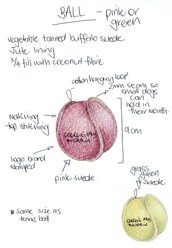 BALL - pink or
green
vegetable tanned buffalo suede
Jute lining
3/4 fill with coconut fibre
cotton hanging loop
2mm seam so
small dogs
can
hold in
their mouth.
matching
top stitching
9cm
logo brand
stamped
pink suede
grass
green
suede
* same size as
tennis ball